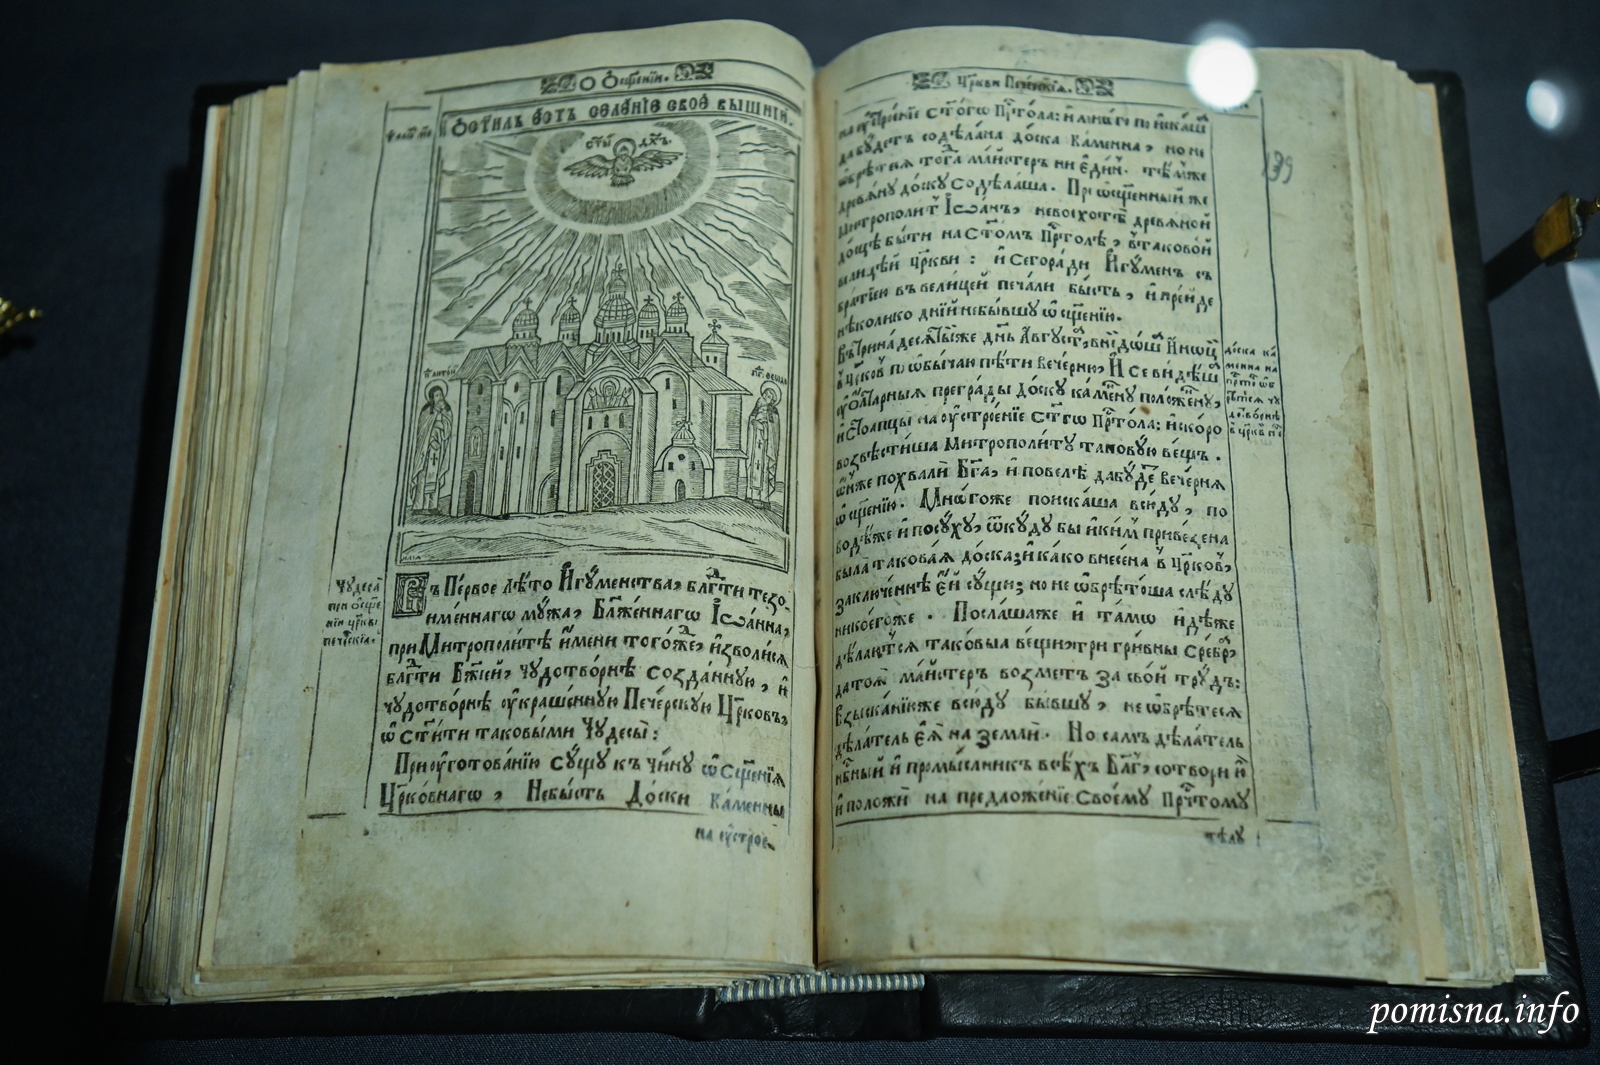 О Ѡсщ҃еніи.
Ѡст҃илъ єсть селеніе своѐ вышній.
ст҃ый дх҃ъ.
Чудеса
при ѡсще
ніи цр҃кви
печерскїѧ.
Въ Первое лѣто Игуменства, блгⷣти тезо-
именнагѡ мужа, Блаженнагѡ Іѡанна,
при Митрополитѣ имени тогоже, изволисѧ
блгⷣти Бж҃їей, чудотворнѣ созданную, и
чудотворнѣ украшенную Печерскую Цр҃ковъ,
ѡст҃ити таковыми Чудесы:
Приуготованію сущу къ чину ѡсщ҃еніѧ
Цр҃ковнагѡ, Небысть Доски Каменны
на устрое-
Цр҃кви Печерскїѧ.
139
на устроеніе ст҃огѡ Прⷭ҇тола: и много поискаш
да будетъ содѣлана доска каменна, но не
ѡбрѣтесѧ тогда майстеръ ни єдин. тѣмже
древѧну доску содѣлаша. Прeѡсщ҃енный же
Митрополит Іѡанъ, невосхотѣ древѧной
дощѣ быти на ст҃омъ Прⷭ҇толѣ, в таковой
велицѣй цр҃кви: и сегоради Игумен съ
братіею въ велицей печали бысть, и прейде
нѣколико дній небывшу ѡсщ҃енію.
Въ Тринадесѧтыйже днь Август, внидѡш Иноц
в Цр҃ков по ѡбычаю пѣти вечерню, И се видѣш
у Олтарныѧ преграды доску каменну положенну,
и столпцы на устроеніе ст҃гѡ Прⷭ҇тола: и скоро
возвѣстиша Митрополиту таковую вещъ.
Онже похвали Бг҃а, и повелѣ да будет вечернѧ
ѡсщ҃енію. Многоже поискаша всюду, по
водѣже и посуху, ѿкуду бы и ким приведена
была таковаѧ доска; и како внесена в Цр҃ков,
заключеннѣ єй сущи; но не ѡбрѣтоша слѣду
никоегоже. Послашаже и тамѡ идѣже
дѣлаютсѧ таковыѧ вещи, три гривны сребр,
да той майстеръ возметъ за свой трудъ:
взысканіюже всюду бывшу, не ѡбрѣтесѧ
дѣлатель єѧ на земли. Но самъ дѣлатель
нб҃ный и промысленикъ всѣхъ Бг҃, сотвори ю
и положи на предложеніе Своему Прчⷭ҇тому
тѣлу
доска ка
менна на
прⷭ҇толъ ѡб
рѣтесѧ чу
дотворнѣ
в цр҃кви
pomisna.info